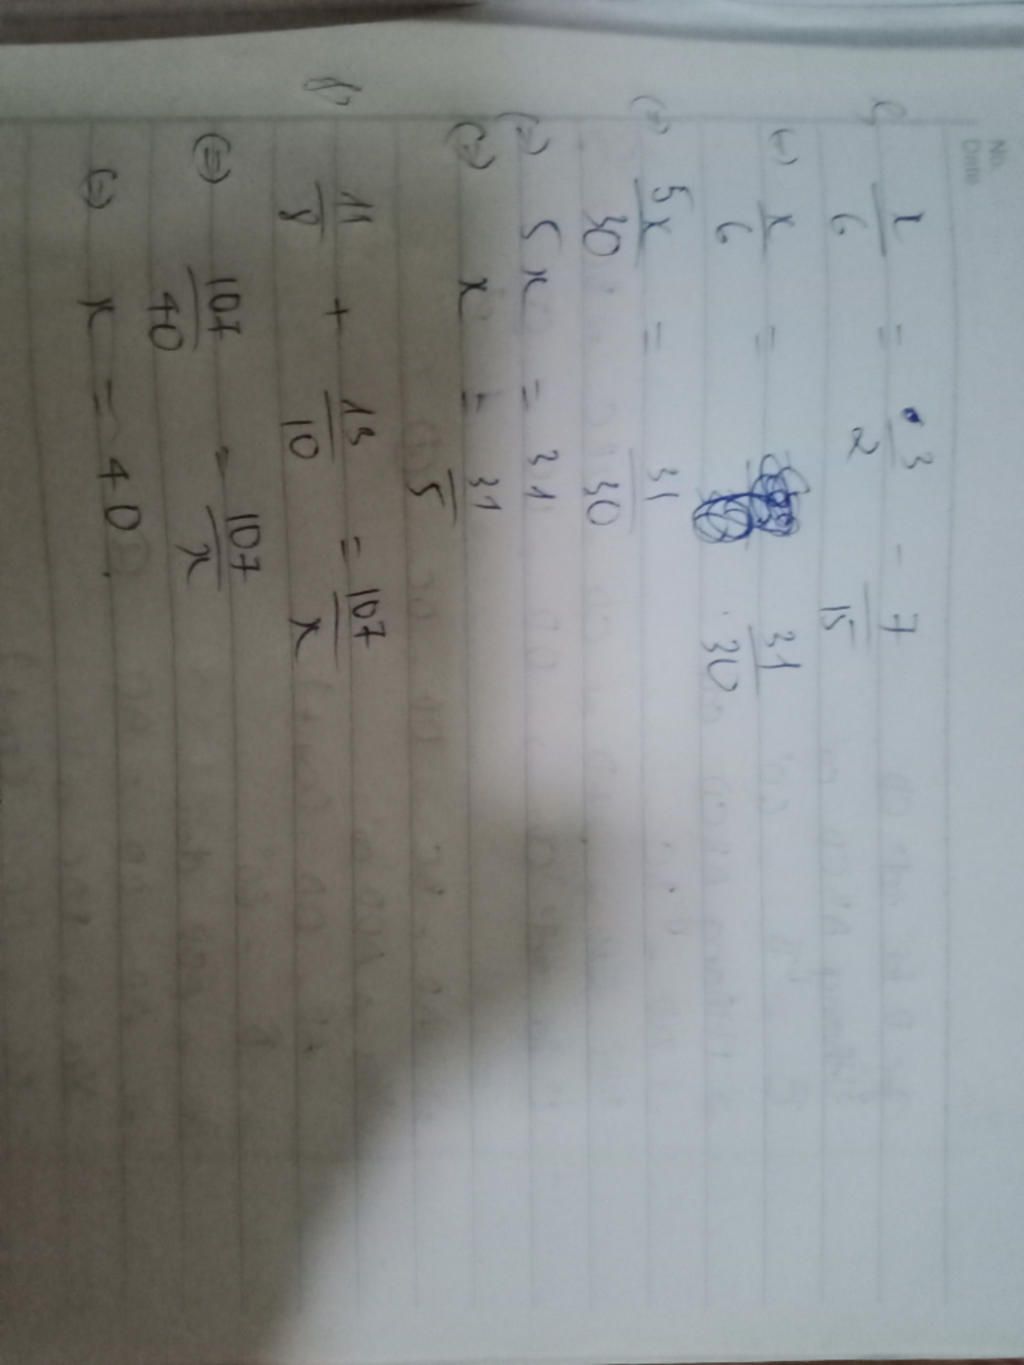 No.
Date
x/6 = 3/2 - 7/15
(=) x/6 = 31/30
(=) 5x/30 = 31/30
(=) 5x = 31
(=) x = 31/5
f) 11/8 + 13/10 = 107/x
(=) 107/40 = 107/x
(=) x = 40